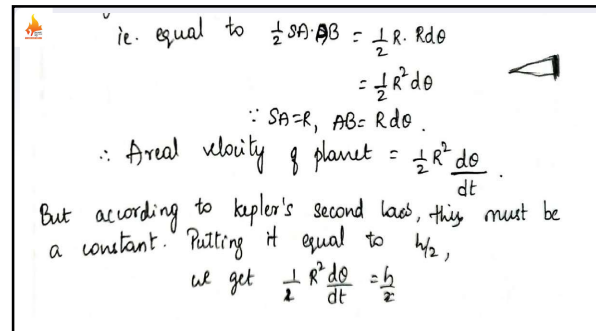 ie. equal to ½ SA·AB = ½ R. Rdθ
= ½ R² dθ
∵ SA=R, AB= Rdθ.
∴ Areal velocity of planet = ½ R² dθ/dt.
But according to kepler's second law, this must be
a constant. Putting it equal to h/2,
we get ½ R² dθ/dt = h/2